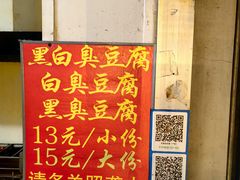 黑白臭豆腐
白臭豆腐
黑臭豆腐
13元/小份
15元/大份